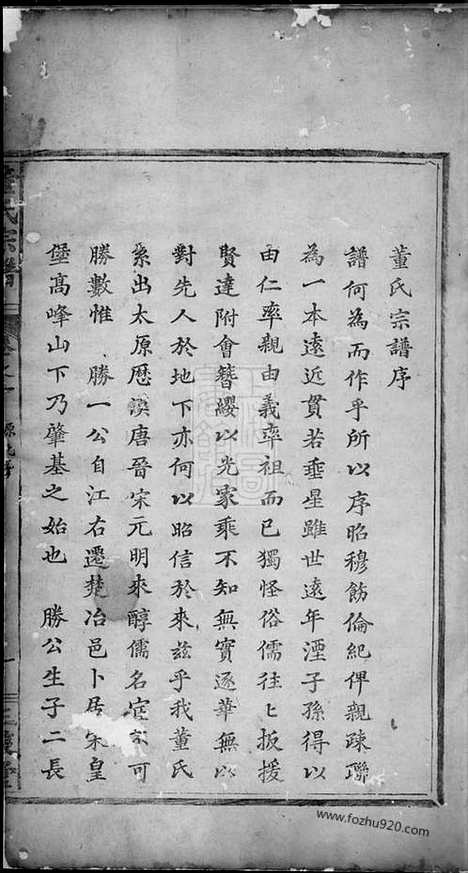 董氏宗譜序
譜何為而作乎所以序昭穆飭倫紀俾親疎聯
為一本遠近貫若垂星雖世遠年湮子孫得以
由仁率親由義率祖而已獨怪俗儒往匕扳援
賢達附會簪纓以光家乘不知無實逐華無以
對先人於地下亦何以昭信於來茲乎我董氏
系出太原歷漢唐晉宋元明來醇儒名宦不可
勝數惟 勝一公自江右遷楚冶邑卜居宋皇
堡高峰山下乃肇基之始也 勝公生子二長
氏宗譜
卷之一
www.fozhu920.com